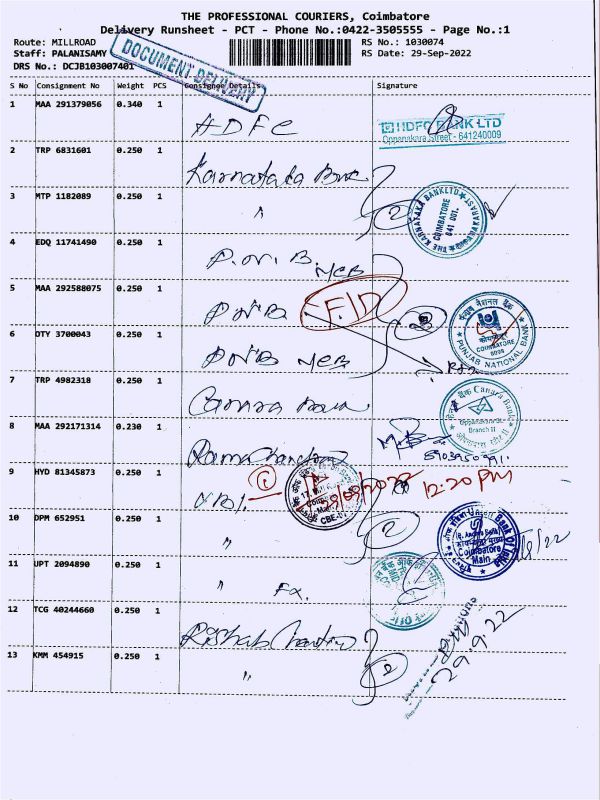 THE PROFESSIONAL COURIERS, Coimbatore
Delivery Runsheet - PCT - Phone No.:0422-3505555 - Page No.:1
Route: MILLROAD
RS No.: 1030074
Staff: PALANISAMY
RS Date: 29-Sep-2022
DRS No.: DCJB103007401
DOCUMENT DELIVERY
S No Consignment No Weight PCS Consignee Details Signature
1 MAA 291379056 0.340 1 HDFC
HDFC BANK LTD
Oppanakara Street - 641240009
2 TRP 6831601 0.250 1 Karnataka
3 MTP 1182089 0.250 1 "
2
THE KARNATAKA BANK LTD
COIMBATORE
641 001.
4 EDQ 11741490 0.250 1 P.N.B
5 MAA 292588075 0.250 1 PNB F.ID
6 OTY 3700043 0.250 1 PNB
पंजाब नैशनल बैंक
COIMBATORE
PUNJAB NATIONAL BANK
7 TRP 4982318 0.250 1 Canara
Canara Bank
Branch II
8 MAA 292171314 0.230 1 Rama
9 HYD 81345873 0.250 1 1
12.20 PM
10 DPM 652951 0.250 1 "
2
Union Bank Of India
Coimbatore
Main
11 UPT 2094890 0.250 1 "
12 TCG 40244660 0.250 1 Rishab
29.9.22
13 KMM 454915 0.250 1 "
2